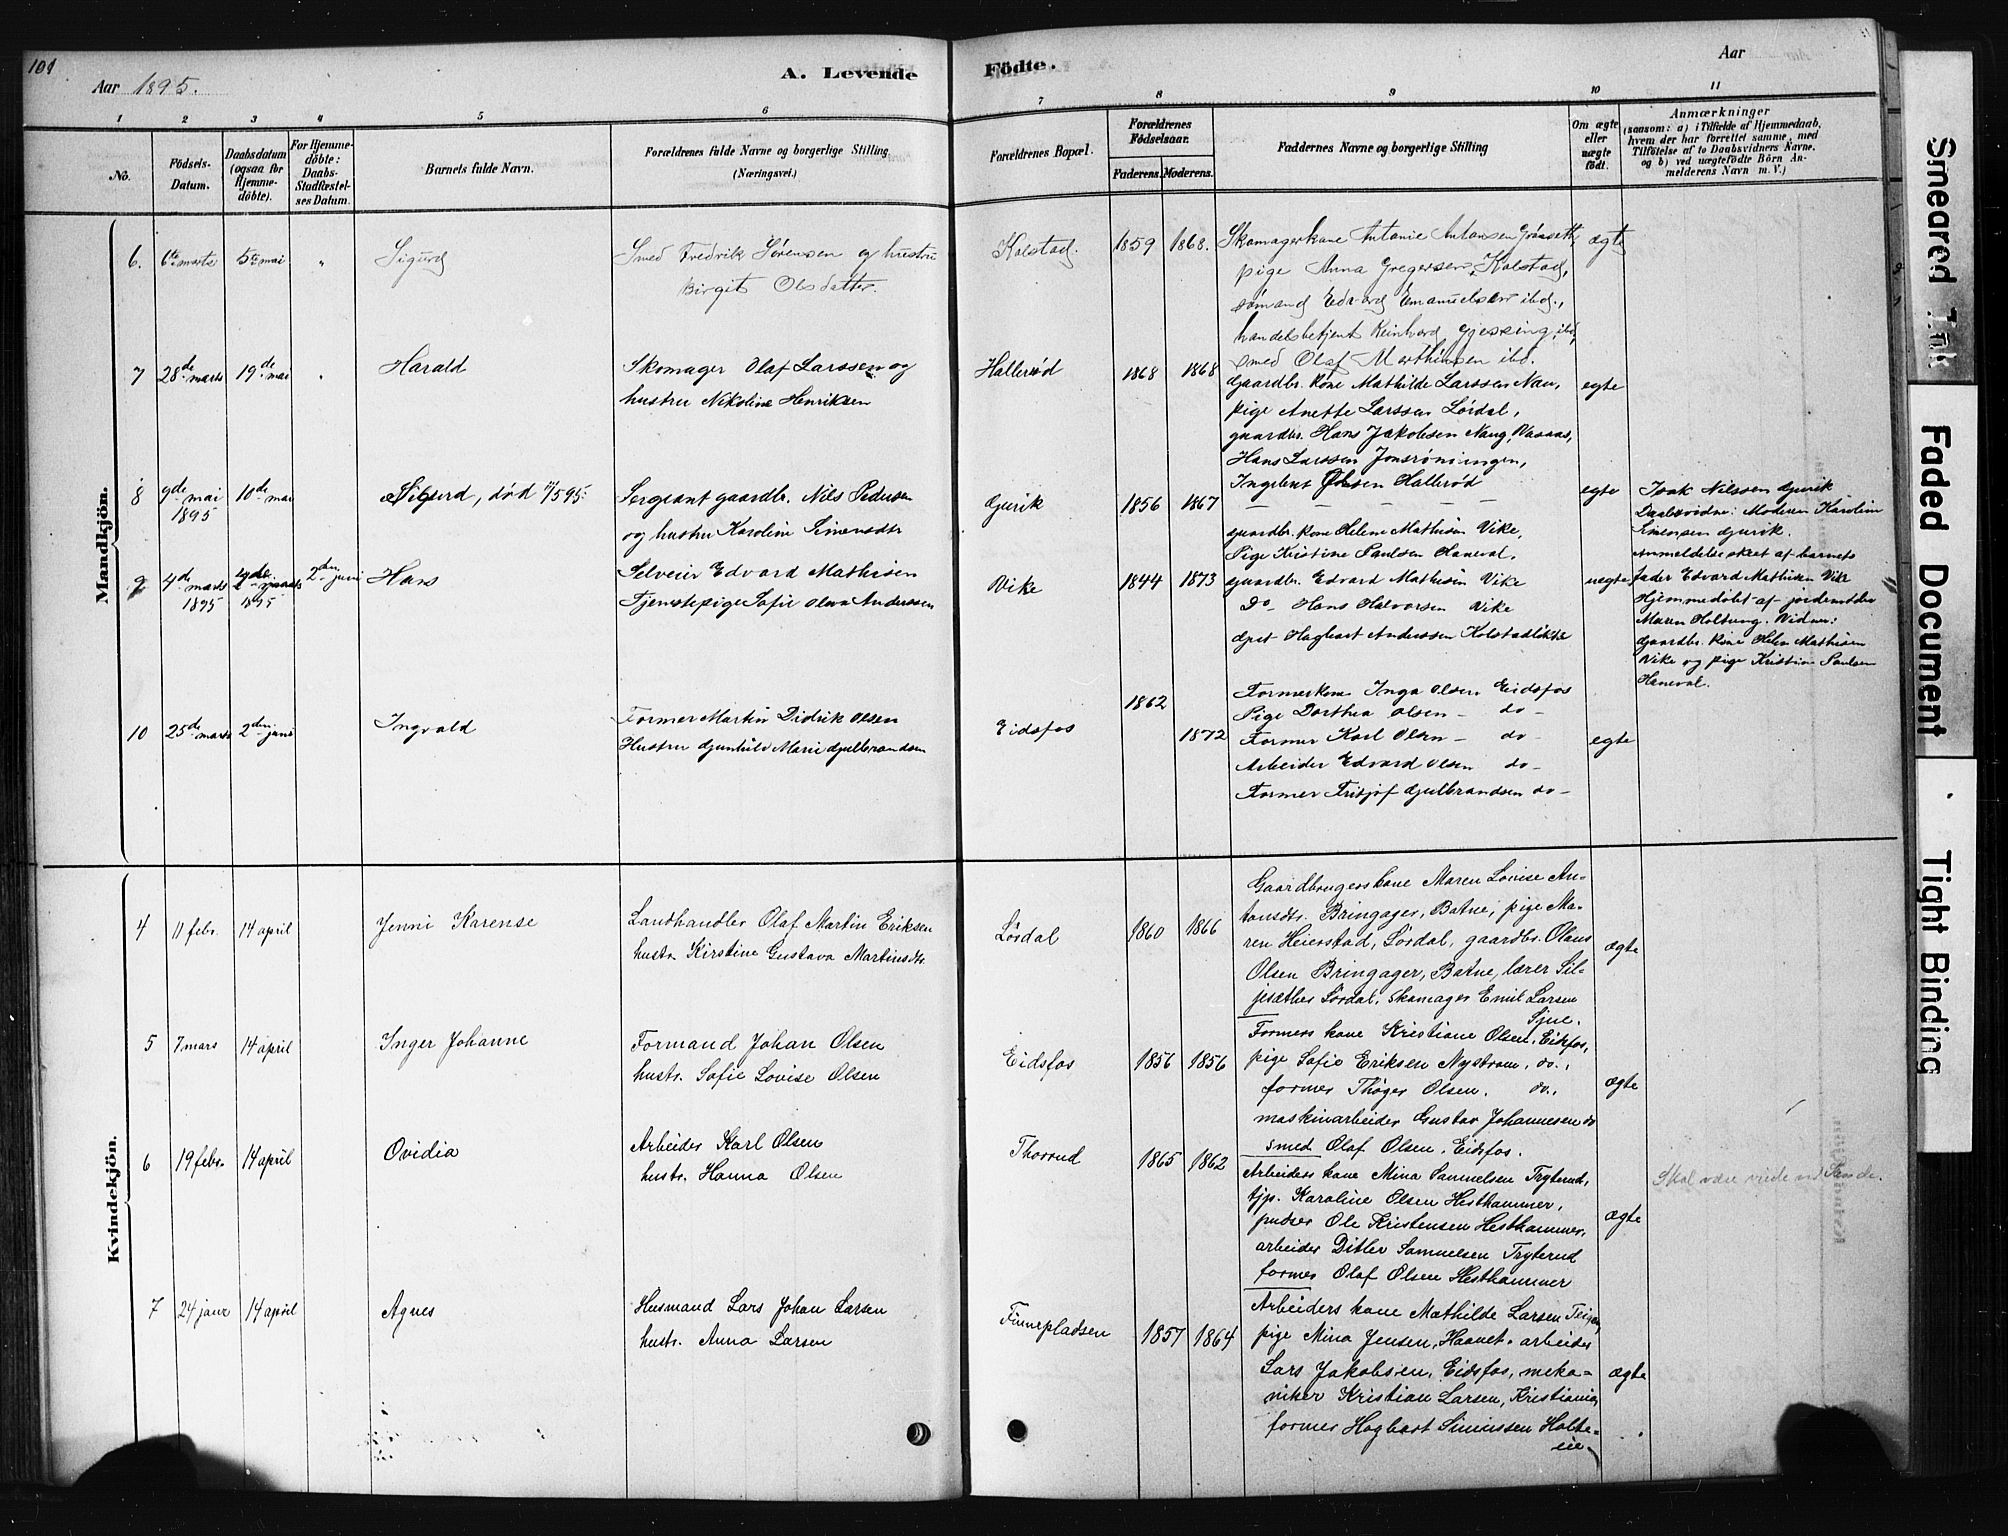 101
Aar 1895.
A. Levende
Födte.
Aar
1 2 3 4 5 6 7 8 9 10 11
No.
Födsels-
Datum.
Daabsdatum
(ogsaa for
Hjemme-
döbte).
For Hjemme-
döbte:
Daabs-
Stadfæstel-
ses Datum.
Barnets fulde Navn.
Forældrenes fulde Navne og borgerlige Stilling
(Næringsvei.)
Forældrenes Bopæl.
Forældrenes
Födselsaar.
Faderens. Moderens.
Faddernes Navne og borgerlige Stilling
Om ægte
eller
uægte
födt.
Anmærkninger
(saasom: a) i Tilfælde af Hjemmedaab,
hvem der har forrettet samme, med
Tilföielse af to Daabsvidners Navne,
og b) ved uægtefödte Börn An-
melderens Navn m. V.)
Mandkjön.
6. 6te marts 5te mai "
Sigurd
Smed Fredrik Sörensen og hustru
Birgit Olsdatter.
Kolstad. 1859 1868.
Skomagerkone Antonie Antonsen
pige Anna Gregersen, Kolstad,
sömand Edvard Emanuelsen ibd.,
handelsbetjent Reinhard Gjessing, ibd,
smed Olaf Marthinsen ibd.
ægte
7 28de marts 19de mai "
Harald
Skomager Olaf Larssen og
hustru Nikoline Henriksen
Hallerød 1868 1868
Gaardbr. kone Mathilde Larssen Nau,
pige Anette Larssen Lördal,
gaardbr. Hans Jakobsen Naug, Vasaas,
Hans Larssen Jonsrøningen,
Ingebret Olsen Hallerød
egte
8 9de mai 1895 10de mai
Sigurd, død 11/5 95.
Sergeant gaardbr. Nils Pedersen
og hustru Karoline Simensdtr
Gjurik 1856 1867
— — — —
egte
Isak Nilssen Gjurik
Daabsvidne: Moderen Karoline
Simensen Gjurik.
9 4de marts 1895
1895
2den juni
Hans
Selveier Edvard Mathisen
Tjenestepige Sofie Olava Anderssen
Vike 1844 1873
gaardbr. kone Helene Mathisen Vike,
Pige Kristine Paulsen Haneval,
gaardbr. Edvard Mathisen Vike
Do- Hans Halvorsen Vike
Hagbart Anderssen
uegte
Anmeldelse skeet af barnets
fader Edvard Mathisen Vik
Hjemmedøbt af jordemoder
Maren Holtung. Vidner:
Gaardbr. kone Helen Mathisen
Vike og pige Kristine Paulsen
Haneval.
10 25de marts 2den juni
Ingvald
Former Martin Didrik Olsen
Hustru Gunhild Marie Gulbrandsen
Eidsfos 1862 1872
Formerkone Inga Olsen Eidsfos
Pige Dorthea Olsen — do —
Former Karl Olsen — do —
Arbeider Edvard Olsen do —
Former Fritjof Gulbrandsen do —
egte
Kvindekjön.
4 11 febr. 14 april
Jenni Karense
Landhandler Olaf Martin Eriksen
hustr. Kirstine Gustava Martinsdtr.
Lördal 1860 1866
Gaardbrugerskone Maren Lovise An-
tonsdtr. Bringager, Botne, pige Ma-
ren Heierstad, Lördal, gaardbr. Olaus
Olsen Bringager, Botne, lærer Sil-
jesæther Lördal, skomager Emil Larsen
ægte
5 7 mars 14 april
Inger Johanne
Formand Johan Olsen
hustr. Sofie Lovise Olsen
Eidsfos 1856 1856
Formers kone Kristiane Olsen, Eidsfos,
pige Sofie Eriksen Nystrom, do.,
former Thöger Olsen. do.,
maskinarbeider Gustav Johannesen do
smed Olaf Olsen, Eidsfos.
ægte
6 19 febr. 14 april
Ovidia
Arbeider Karl Olsen
hustr. Hanna Olsen
Thorrud 1865 1862
Arbeiders kone Mina Samuelsen Tryterud,
tjp. Karoline Olsen Hesthammer,
pudser Ole Kristensen Hesthammer,
arbeider Ditlev Samuelsen Tryterud
former Olaf Olsen Hesthammer
ægte
Skal være viede ved Sande.
7 24 janr 14 april
Agnes
Husmand Lars Johan Larsen
hustr. Anna Larsen
Finnepladsen 1857 1864
Arbeiders kone Mathilde Larsen Teigen,
pige Mina Jensen, Haanet, arbeider
Lars Jakobsen, Eidsfos, meka-
niker Kristian Larsen, Kristiania,
former Hagbart Simensen Holte-
eie
ægte
Smeared Ink
Faded Document
Tight Binding